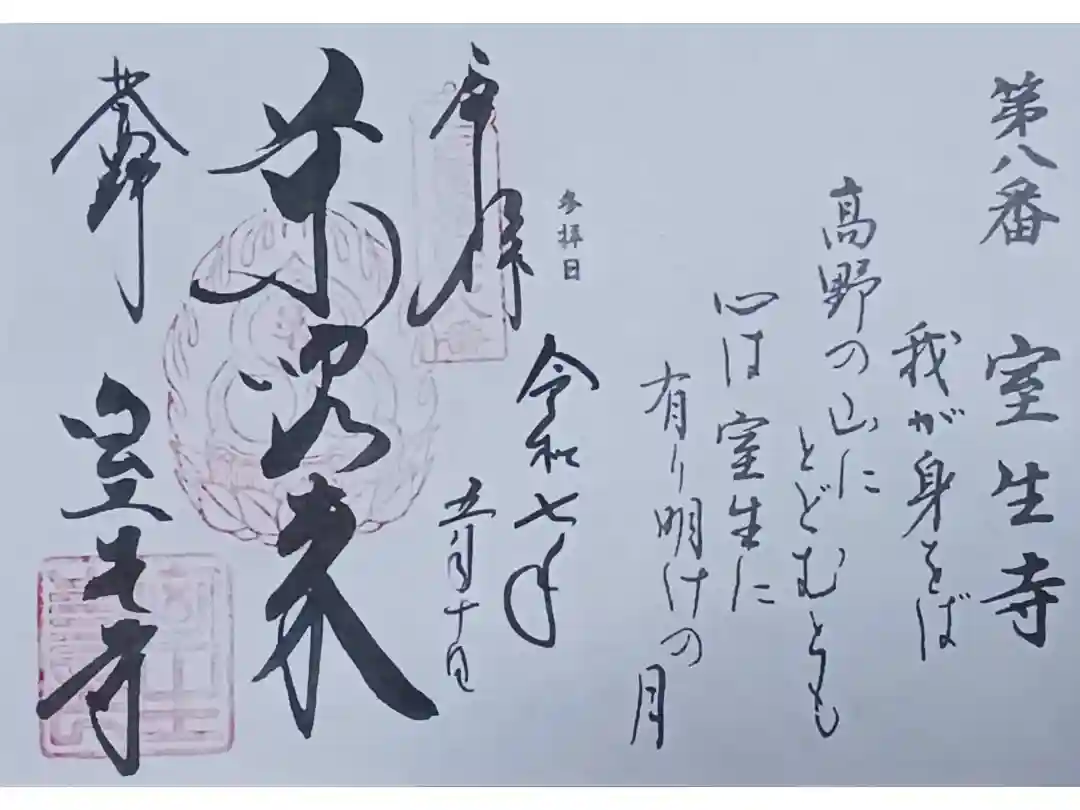 第八番 室生寺
我が身をば
高野の山に
とどむとも
心は室生に
有り明けの月
参拝日
令和七年
五月十日
奉拝
室生寺